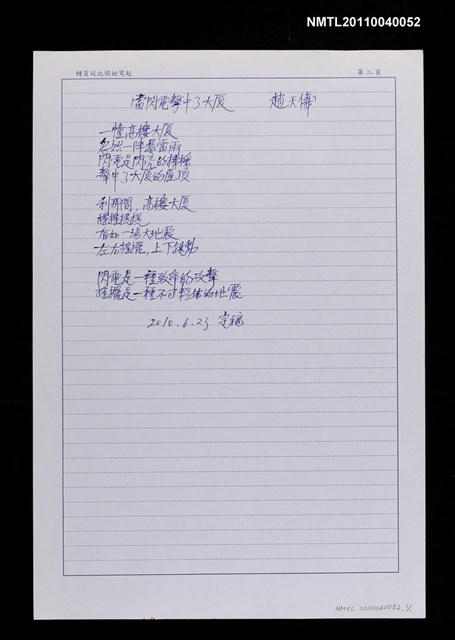 NMTL20110040052
轉頁從此開始寫起
第二頁
當閃電擊中了大廈 趙天儀
一幢高樓大廈
忽然一陣暴雷雨
閃電是閃亮的棒棰
擊中了大廈的屋頂
剎那間,高樓大廈
搖搖擺擺
有如一場大地震
左右搖擺,上下跳動
閃電是一種致命的攻擊
搖擺是一種不可輕估的地震
2010.6.23 定稿
NMTL 20110040052 1/1